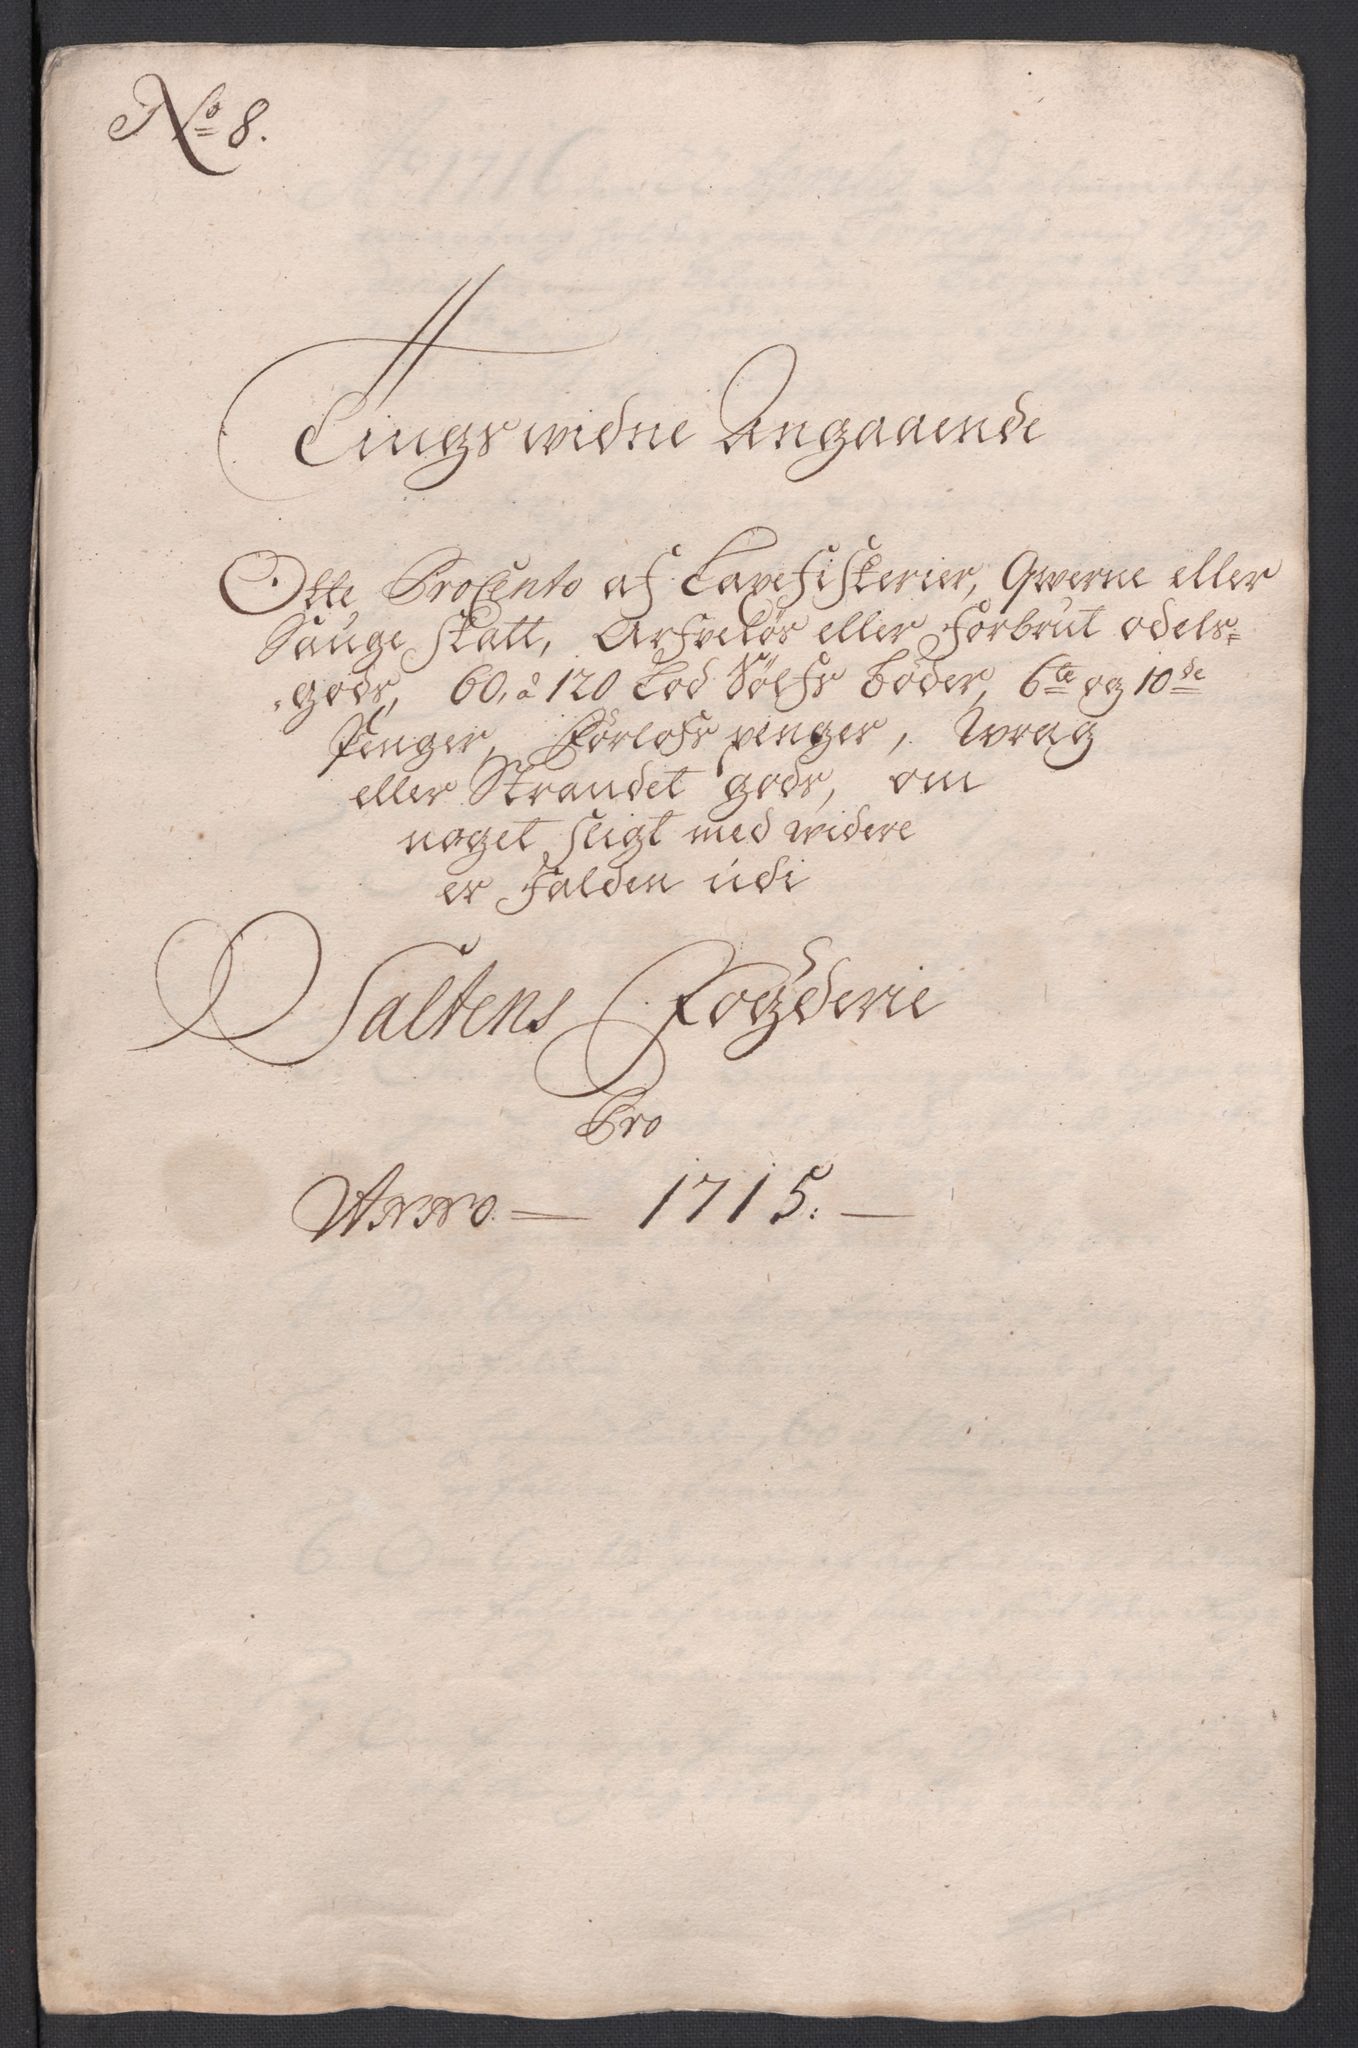 No 8.
Tingswidne Angaaende
Otte ProCento af Laxefiskerier, Qwerne eller
Sauge skatt, Arfveløs eller Forbrut odels-
gods, 60, à 120 Lod Sølfs bøder, 6te og 10de
Penger, Førlofs penger, Wrag
eller Strandet gods, om
noget sligt med widere
er falden udi
Saltens Fogderie
Pro
Anno. — 1715. —